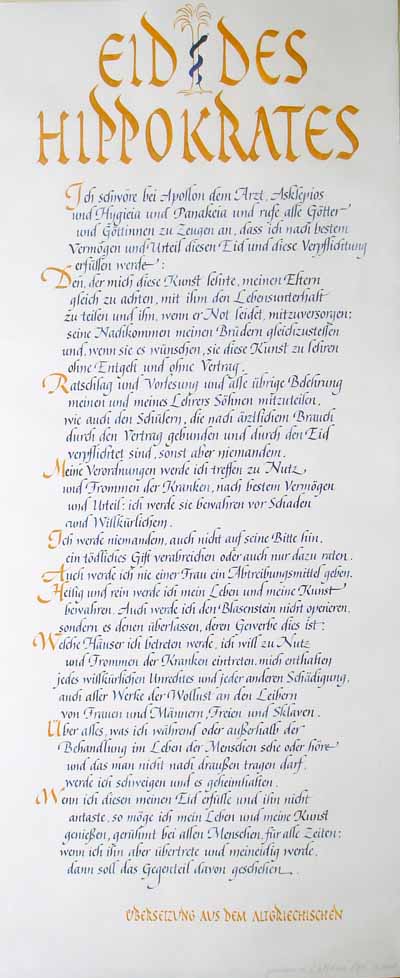 EID DES
HIPPOKRATES
Ich schwöre bei Apollon dem Arzt, Asklepios
und Hygieia und Panakeia und rufe alle Götter
und Göttinnen zu Zeugen an, dass ich nach bestem
Vermögen und Urteil diesen Eid und diese Verpflichtung
erfüllen werde:
Den, der mich diese Kunst lehrte, meinen Eltern
gleich zu achten, mit ihm den Lebensunterhalt
zu teilen und ihn, wenn er Not leidet, mitzuversorgen;
seine Nachkommen meinen Brüdern gleichzustellen
und, wenn sie es wünschen, sie diese Kunst zu lehren
ohne Entgelt und ohne Vertrag.
Ratschlag und Vorlesung und alle übrige Belehrung
meinen und meines Lehrers Söhnen mitzuteilen,
wie auch den Schülern, die nach ärztlichem Brauch
durch den Vertrag gebunden und durch den Eid
verpflichtet sind, sonst aber niemandem.
Meine Verordnungen werde ich treffen zu Nutz
und Frommen der Kranken, nach bestem Vermögen
und Urteil; ich werde sie bewahren vor Schaden
und Willkürlichem.
Ich werde niemandem, auch nicht auf seine Bitte hin,
ein tödliches Gift verabreichen oder auch nur dazu raten.
Auch werde ich nie einer Frau ein Abtreibungsmittel geben.
Heilig und rein werde ich mein Leben und meine Kunst
bewahren. Auch werde ich den Blasenstein nicht operieren,
sondern es denen überlassen, deren Gewerbe dies ist;
Welche Häuser ich betreten werde, ich will zu Nutz
und Frommen der Kranken eintreten, mich enthalten
jedes willkürlichen Unrechtes und jeder anderen Schädigung,
auch aller Werke der Wollust an den Leibern
von Frauen und Männern, Freien und Sklaven.
Über alles, was ich während oder außerhalb der
Behandlung im Leben der Menschen sehe oder höre
und das man nicht nach draußen tragen darf,
werde ich schweigen und es geheimhalten.
Wenn ich diesen meinen Eid erfülle und ihn nicht
antaste, so möge ich mein Leben und meine Kunst
genießen, gerühmt bei allen Menschen, für alle Zeiten;
wenn ich ihn aber übertrete und meineidig werde,
dann soll das Gegenteil davon geschehen.
ÜBERSETZUNG AUS DEM ALTGRIECHISCHEN